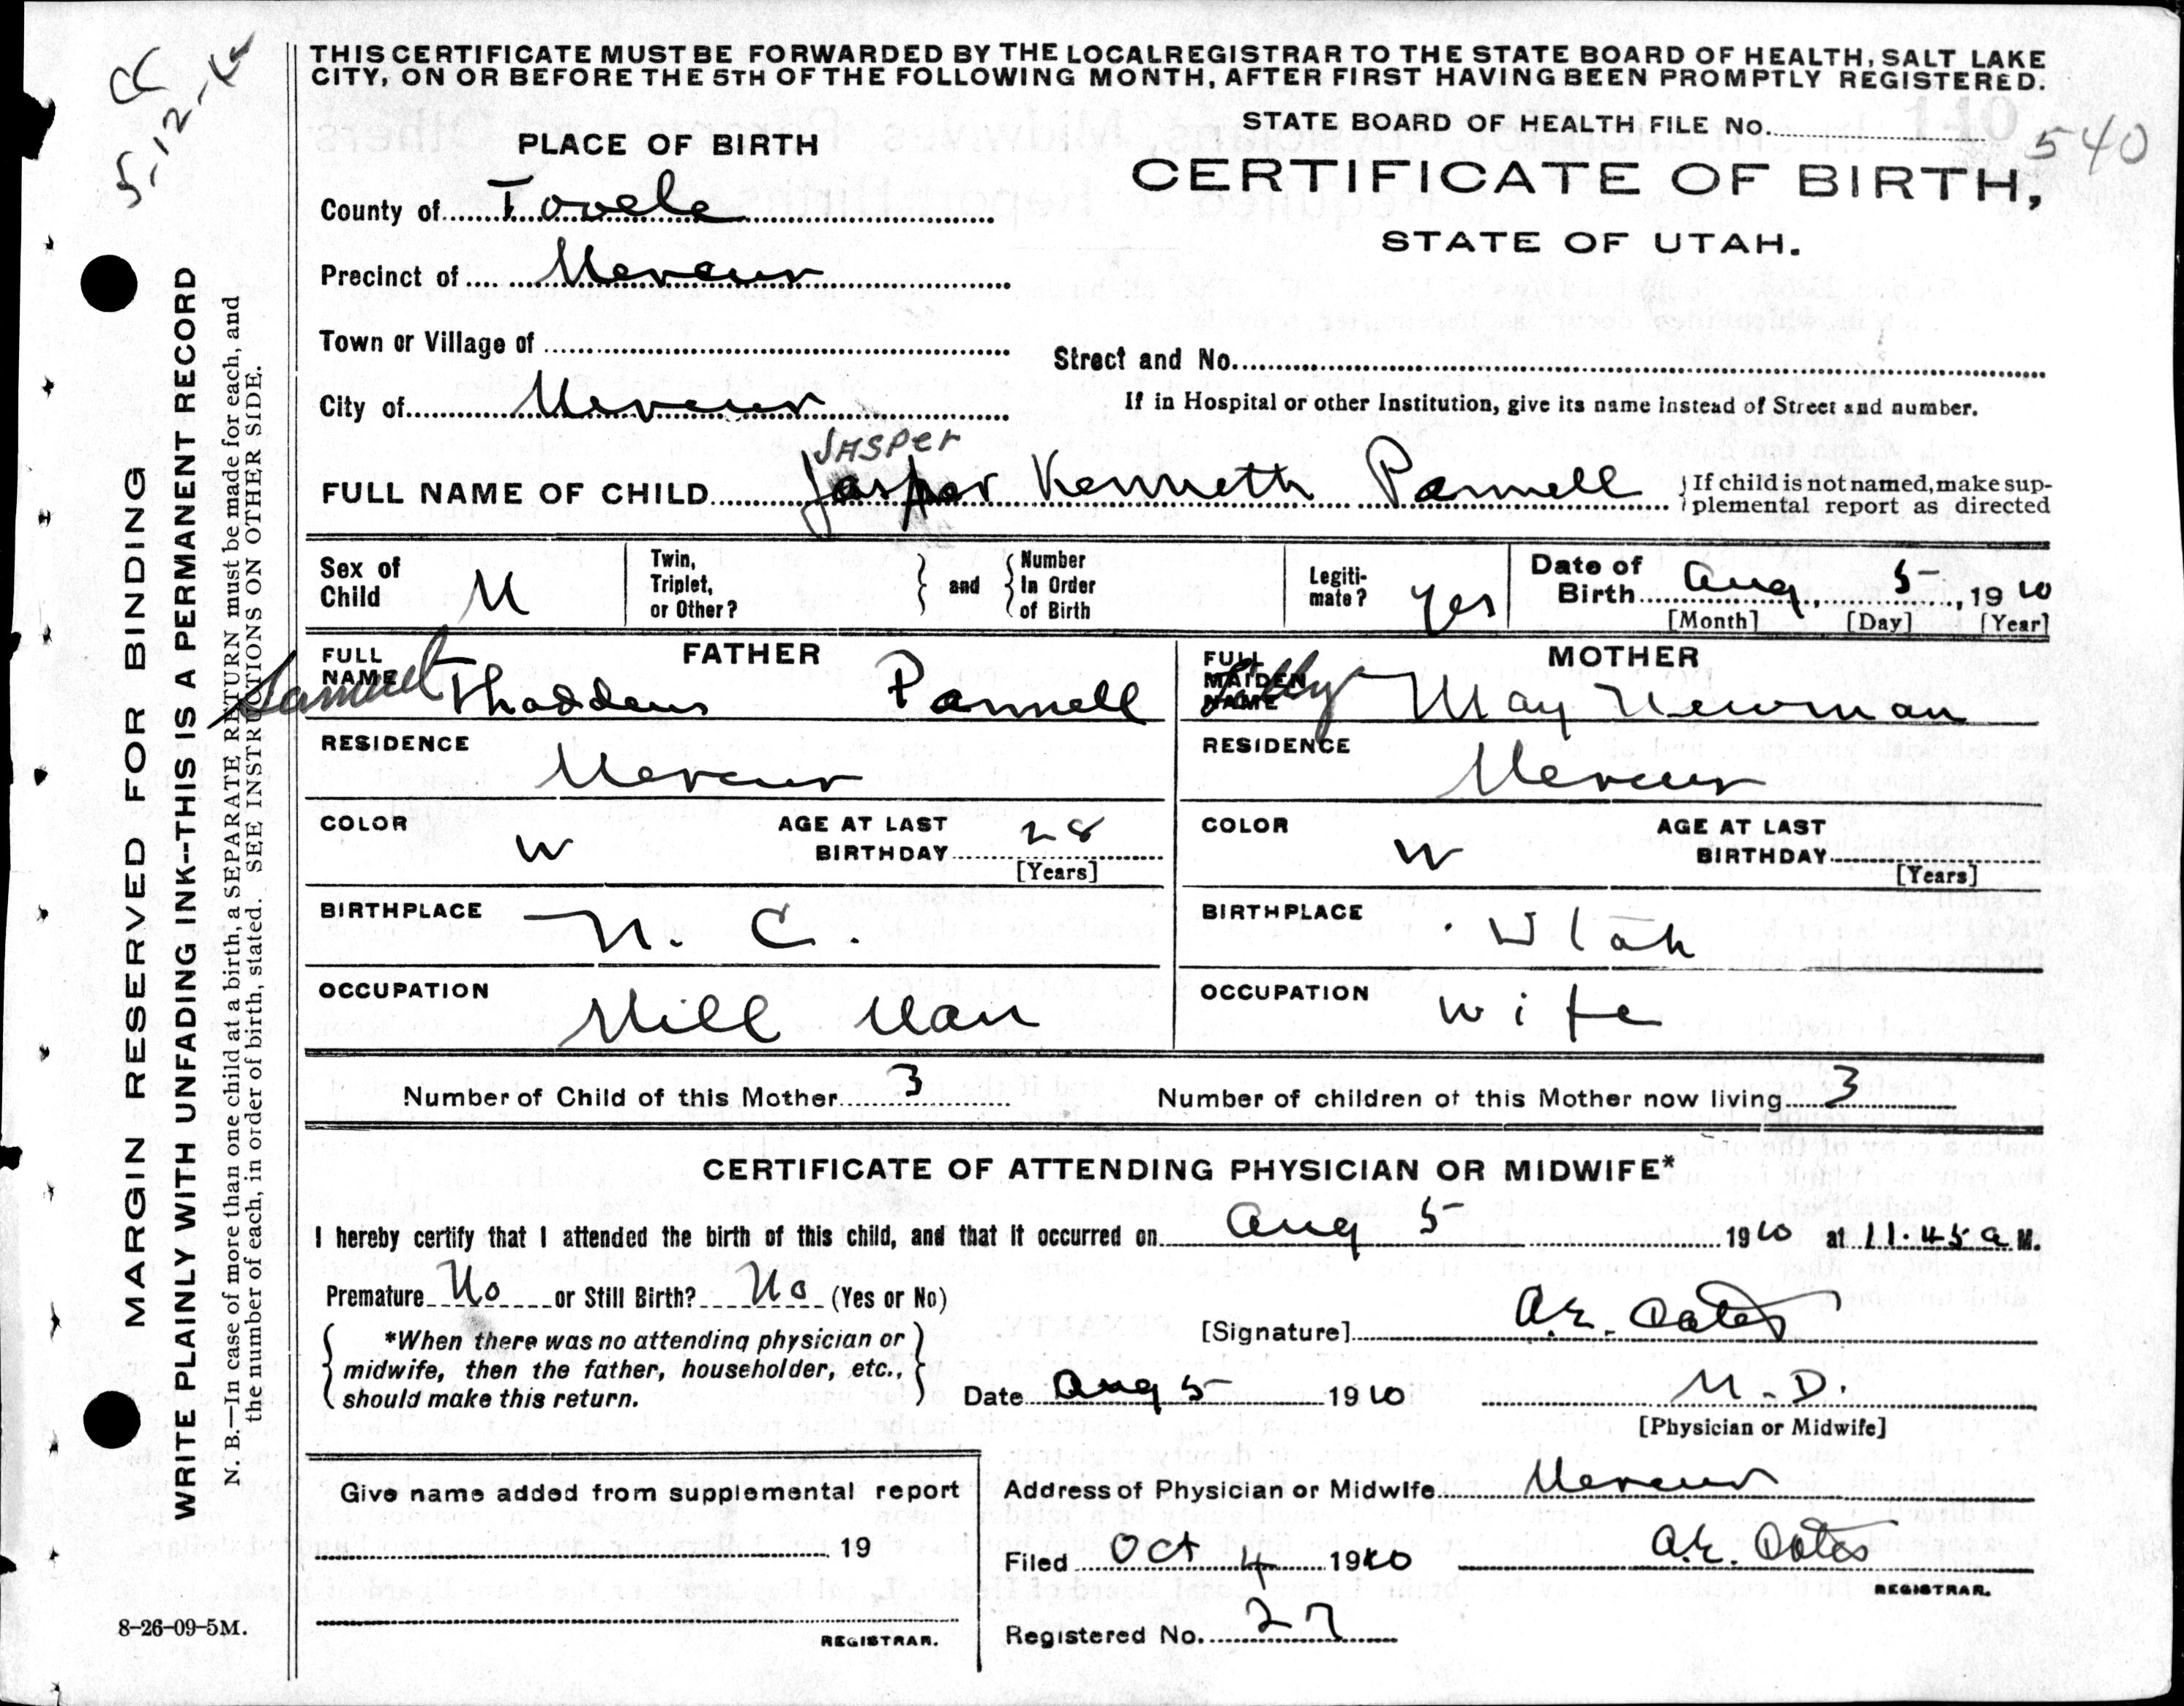 THIS CERTIFICATE MUST BE FORWARDED BY THE LOCAL REGISTRAR TO THE STATE BOARD OF HEALTH, SALT LAKE
CITY, ON OR BEFORE THE 5TH OF THE FOLLOWING MONTH, AFTER FIRST HAVING BEEN PROMPTLY REGISTERED.
STATE BOARD OF HEALTH FILE No. 540
PLACE OF BIRTH
CERTIFICATE OF BIRTH,
STATE OF UTAH.
County of Tooele
Precinct of Mercur
Town or Village of
Street and No.
City of Mercur
If in Hospital or other Institution, give its name instead of Street and number.
JASPer
FULL NAME OF CHILD Jasper Kenneth Pannell
If child is not named, make sup-
plemental report as directed
Sex of Child M
Twin, Triplet, or Other?
and
Number In Order of Birth
Legiti-mate? Yes
Date of Birth Aug 5, 1910
[Month] [Day] [Year]
FATHER
FULL NAME Samuel Thaddeus Pannell
MOTHER
FULL MAIDEN NAME May Newman
RESIDENCE Mercur
RESIDENCE Mercur
COLOR W
AGE AT LAST BIRTHDAY 28
[Years]
COLOR W
AGE AT LAST BIRTHDAY
[Years]
BIRTHPLACE N. C.
BIRTHPLACE Utah
OCCUPATION Mill Man
OCCUPATION Wife
Number of Child of this Mother 3
Number of children of this Mother now living 3
CERTIFICATE OF ATTENDING PHYSICIAN OR MIDWIFE*
I hereby certify that I attended the birth of this child, and that it occurred on Aug 5 1910 at 11.45 a M.
Premature No or Still Birth? No (Yes or No)
*When there was no attending physician or
midwife, then the father, householder, etc.,
should make this return.
[Signature] A.E. Oates
Date Aug 5 1910
M.D.
[Physician or Midwife]
Give name added from supplemental report
19
REGISTRAR.
Address of Physician or Midwife Mercur
Filed Oct 4 1910
A.E. Oates
REGISTRAR.
Registered No. 27
8-26-09-5M.
MARGIN RESERVED FOR BINDING
WRITE PLAINLY WITH UNFADING INK--THIS IS A PERMANENT RECORD
N. B.—In case of more than one child at a birth, a SEPARATE RETURN must be made for each, and
the number of each, in order of birth, stated. SEE INSTRUCTIONS ON OTHER SIDE.